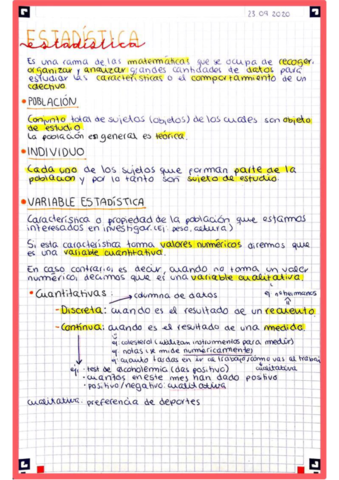 23.09.2020
ESTADÍSTICA
estadística
Es una rama de las matemáticas que se ocupa de recoger,
organizar y analizar grandes cantidades de datos para
estudiar las características o el comportamiento de un
colectivo.
• POBLACIÓN
Conjunto total de sujetos (objetos) de los cuales son objeto
de estudio.
La población en general es teórica.
• INDIVIDUO
Cada uno de los sujetos que forman parte de la
población y por lo tanto son sujeto de estudio.
• VARIABLE ESTADÍSTICA
Característica o propiedad de la población que estamos
interesados en investigar. (Ej: peso, altura)
Si esta característica toma valores numéricos diremos que
es una variable cuantitativa.
En caso contrario, es decir, cuando no toma un valor
numérico, decimos que es una variable cualitativa.
• Cuantitativas: → columna de datos
ej: nº hermanos
- Discreta: cuando es el resultado de un recuento
- Continua: cuando es el resultado de una medida.
ej: colesterol (necesitan instrumentos para medir)
ej: notas (se mide numéricamente)
ej: cuanto tardas en ir al trabajo / cómo vas al trabajo
cualitativa
ej: · test de alcoholemia (das positivo)
· cuantos en este mes han dado positivo
· positivo/negativo: cualitativa
cualitativa: preferencia de deportes